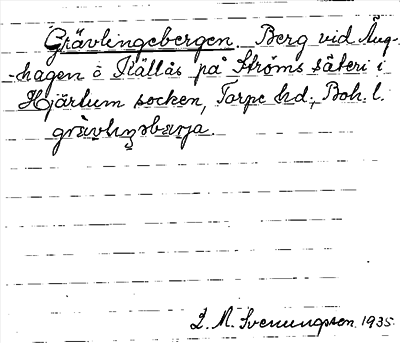 Grävlingebergen. Berg vid Äng-
-hagen å Källås på Ströms säteri i
Hjärtum socken, Torpe hd., Boh. l.
grävlıŋəbærja.
L. M. Svenungsson 1935.